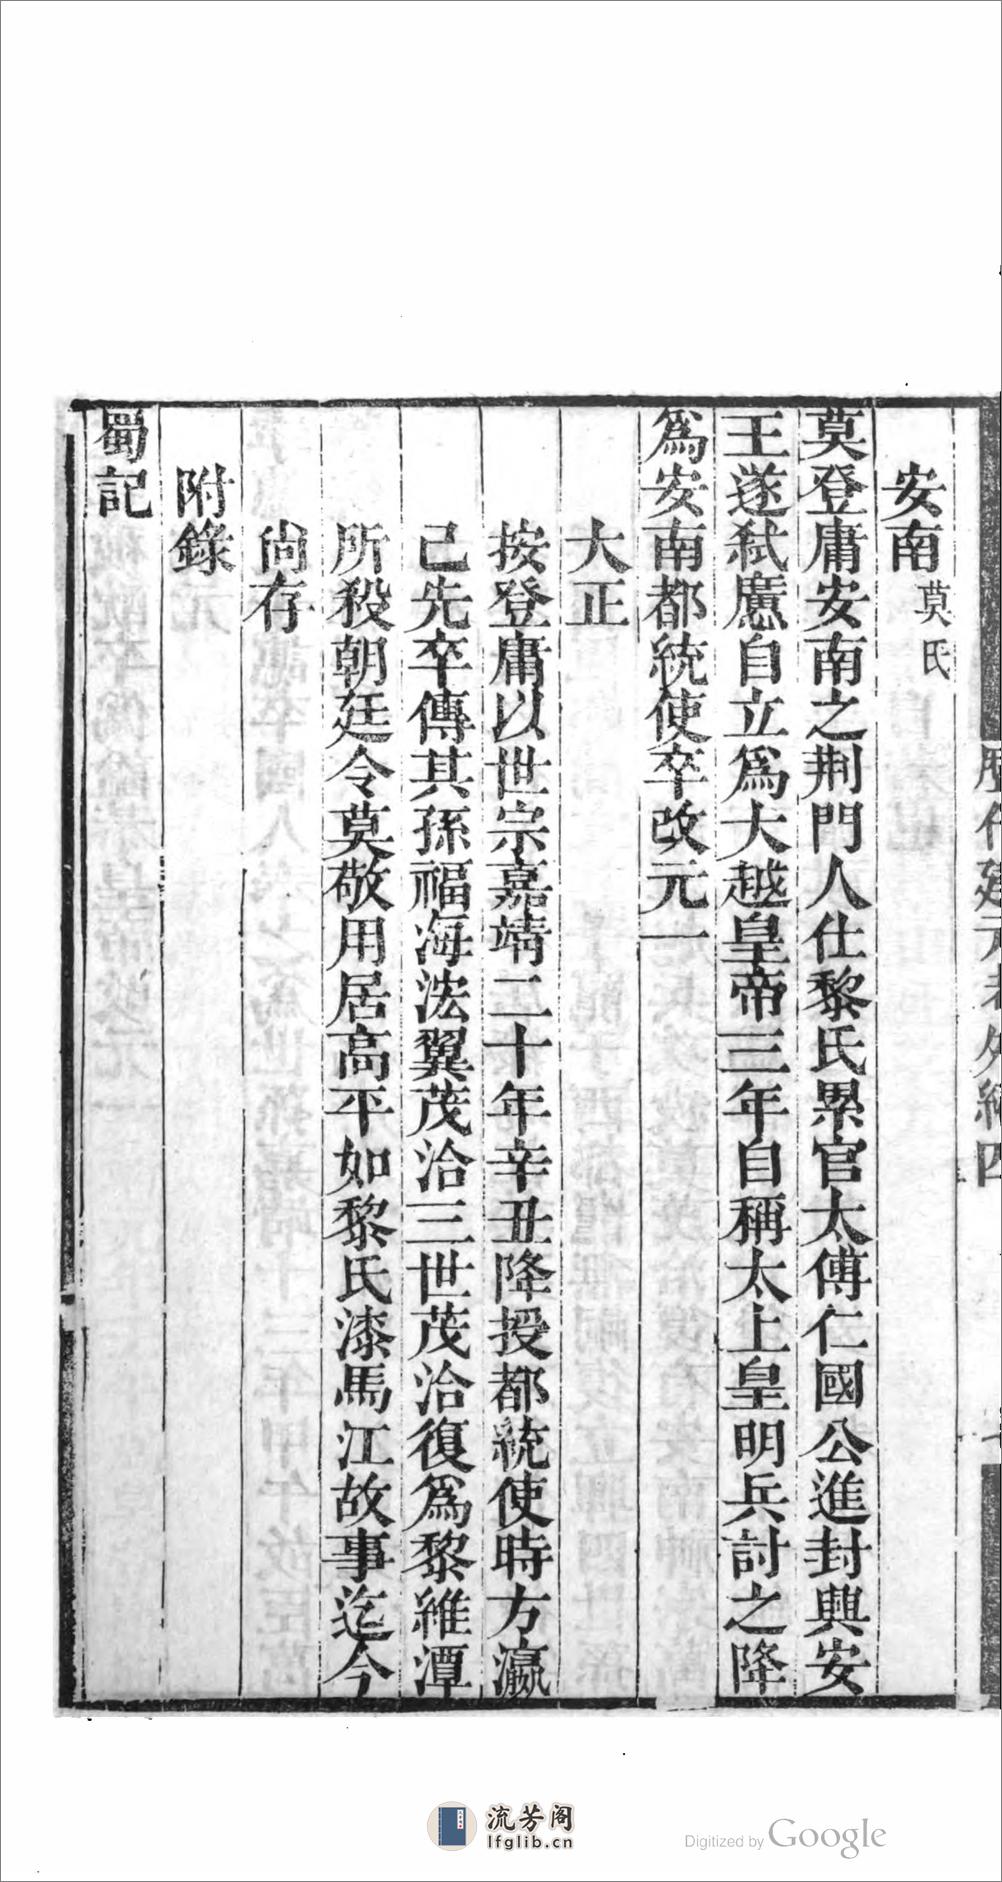 歷代建元考外編四
安南莫氏
莫登庸安南之荆門人仕黎氏累官太傅仁國公進封興安
王遂弑懬自立爲大越皇帝三年自稱太上皇明兵討之降
爲安南都統使卒改元一
大正
按登庸以世宗嘉靖二十年辛丑降授都統使時方瀛
己先卒傳其孫福海浤翼茂洽三世茂洽復爲黎維潭
所殺朝廷令莫敬用居高平如黎氏漆馬江故事迄今
尙存
附錄
蜀記
流芳阁
lfglib.cn
Digitized by Google